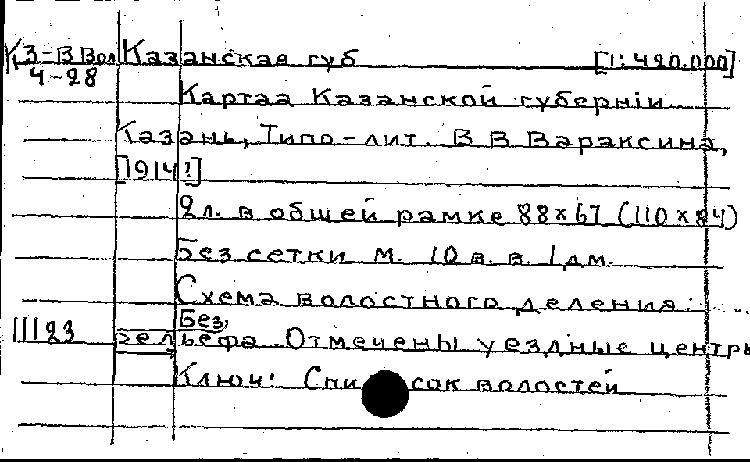 К3-В Вол Казанская губ [1:420.000]
4-28
Картаа Казанской губернiи
Казань, Типо-лит. В В Вараксина,
[1914?]
2 л. в общей рамке 88×67 (110×84)
Без сетки М. 10 в. в 1 дм.
Схема волостного деления.
Без
11123 рельефа. Отмечены уездные центры
Ключ: Список волостей